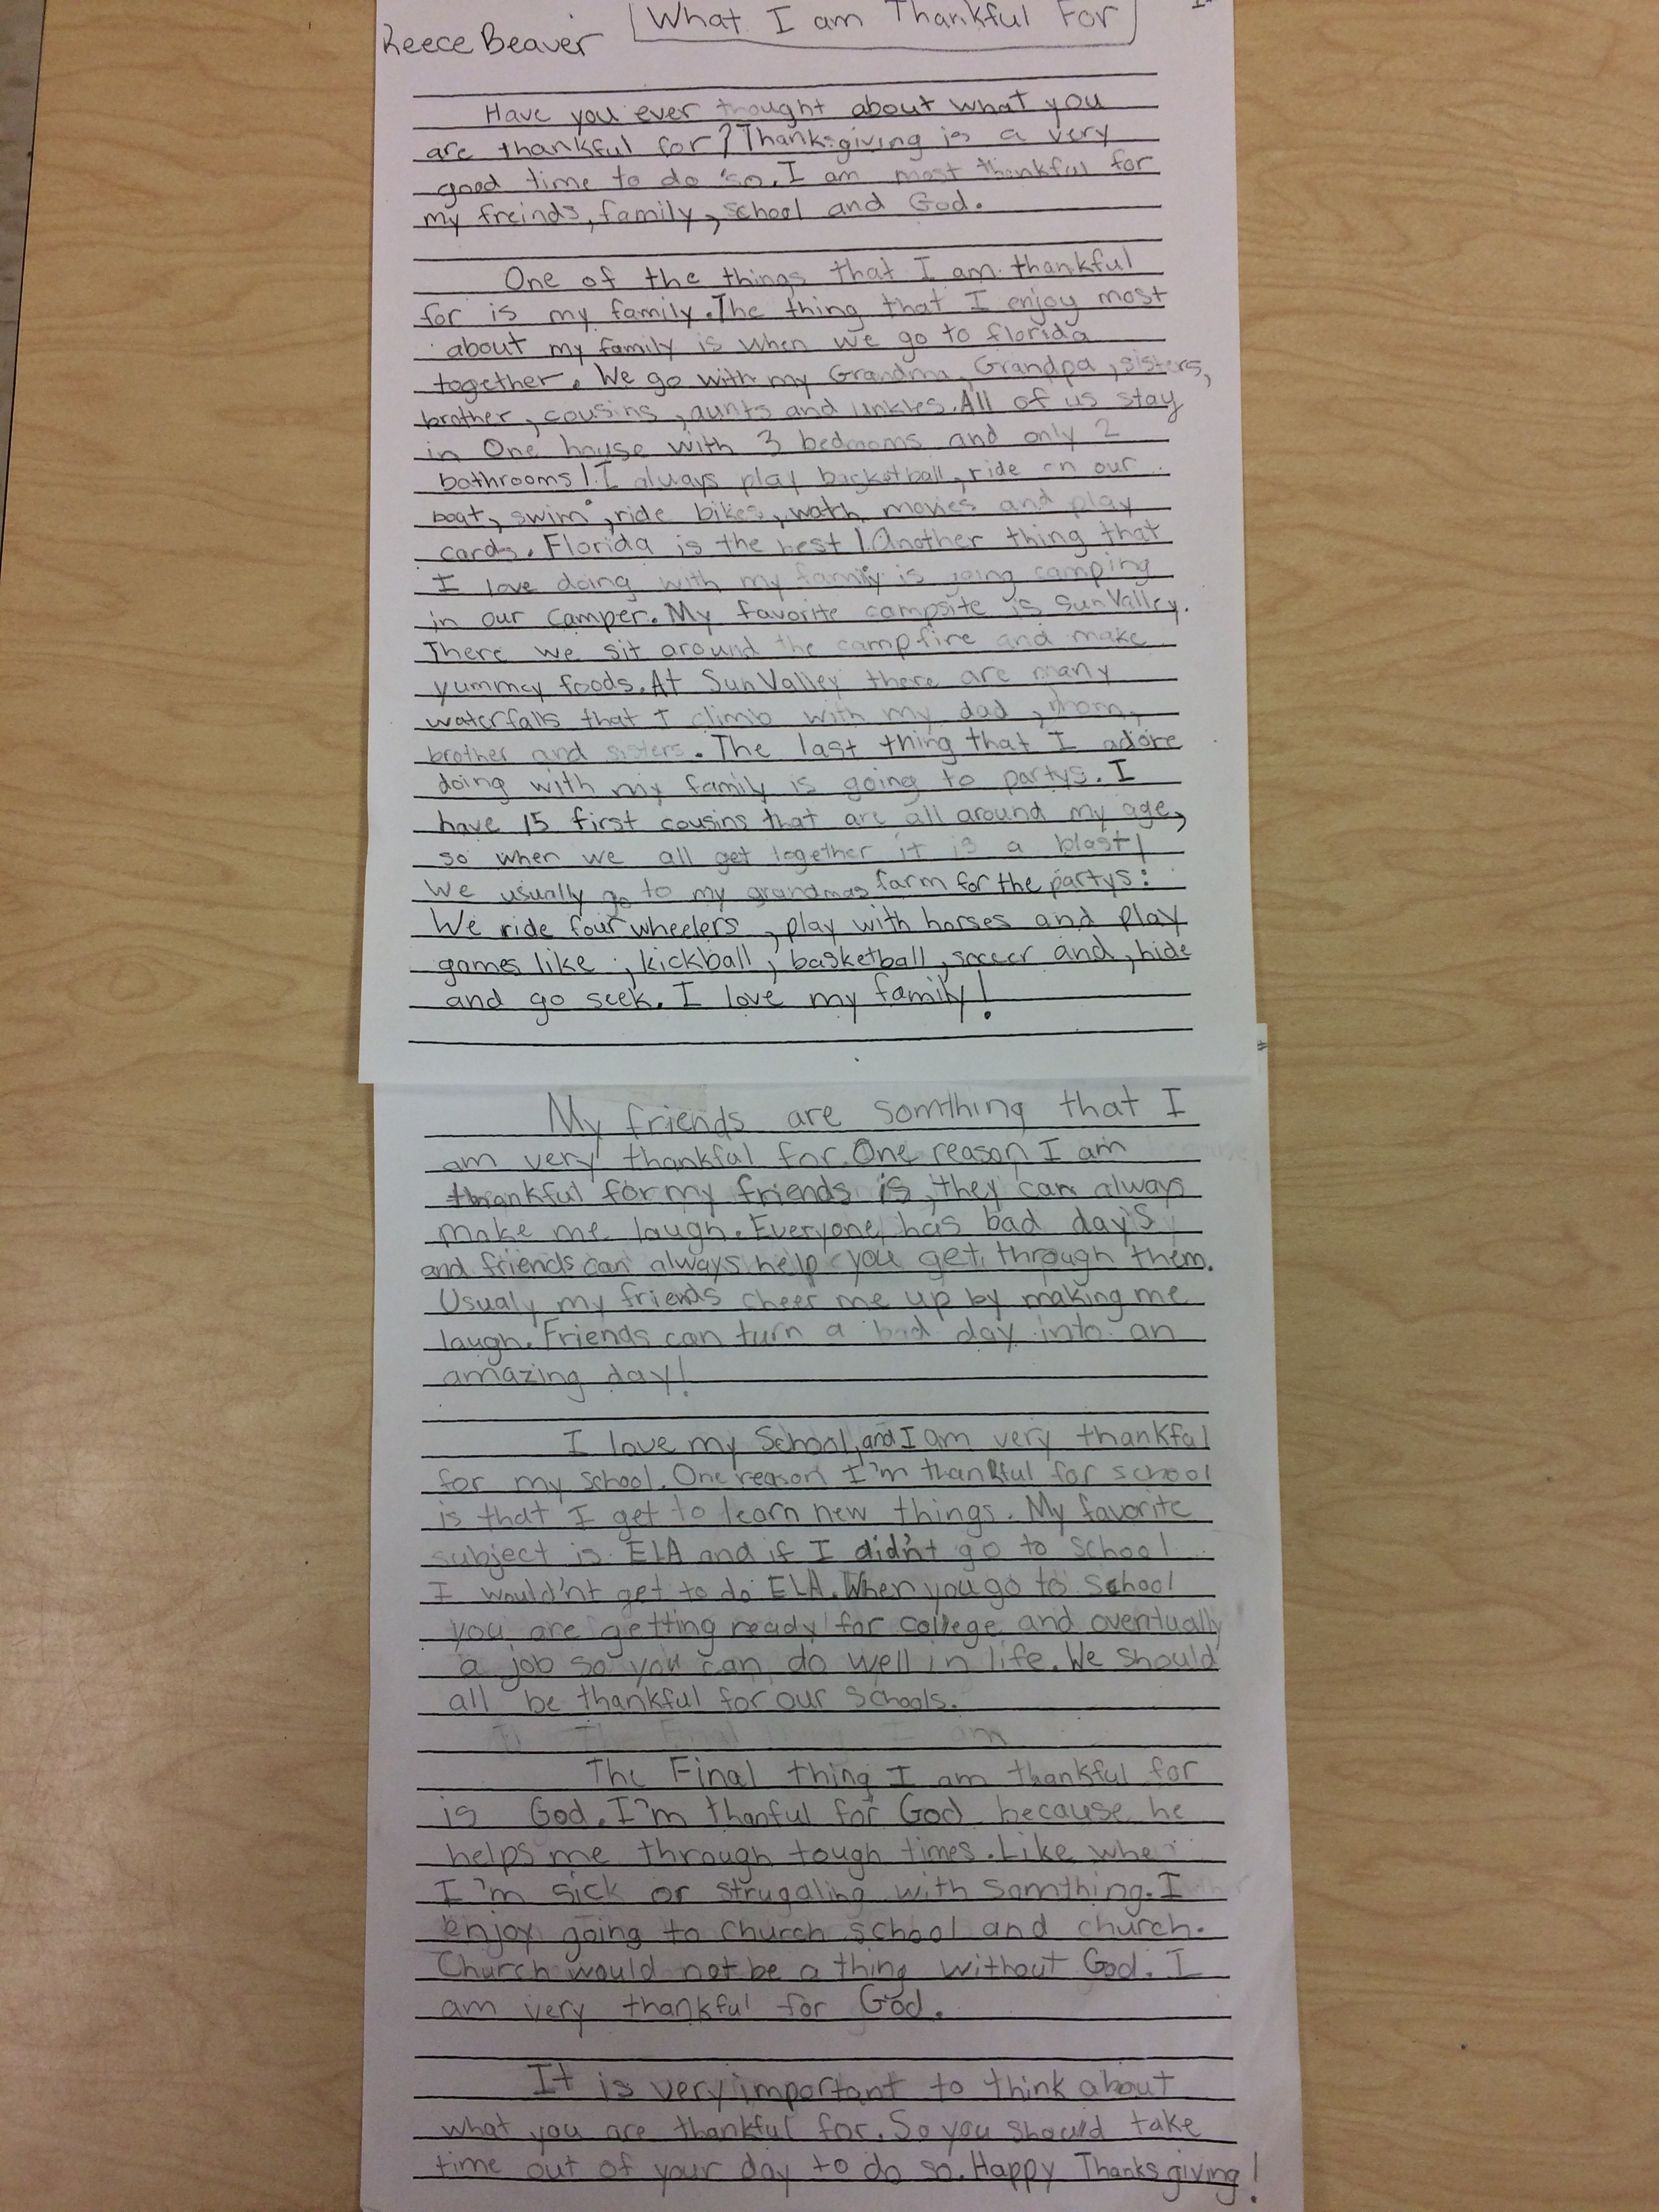 What I am Thankful For
Reece Beaver
Have you ever thought about what you
are thankful for? Thanksgiving is a very
good time to do so. I am most thankful for
my freinds, family, school and God.
One of the things that I am thankful
for is my family. The thing that I enjoy most
about my family is when we go to florida
together. We go with my Grandma, Grandpa, sisters,
brother, cousins, aunts and unkles. All of us stay
in One house with 3 bedrooms and only 2
bathrooms! I always play basketball, ride on our
boat, swim, ride bikes, watch movies and play
cards. Florida is the best! Another thing that
I love doing with my family is going camping
in our camper. My favorite campsite is Sun Valley.
There we sit around the campfire and make
yummy foods. At Sun Valley there are many
waterfalls that I climb with my dad, mom,
brother and sisters. The last thing that I adore
doing with my family is going to partys. I
have 15 first cousins that are all around my age,
so when we all get together it is a blast!
We usually go to my grandmas farm for the partys.
We ride four wheelers, play with horses and play
games like, kickball, basketball, soccer and, hide
and go seek. I love my family!
My friends are somthing that I
am very thankful for. One reason I am
thankful for my friends is, they can always
make me laugh. Everyone has bad days
and friends can always help you get through them.
Usualy my friends cheer me up by making me
laugh. Friends can turn a bad day into an
amazing day!
I love my School, and I am very thankful
for my school. One reason I'm thankful for school
is that I get to learn new things. My favorite
subject is ELA and if I didn't go to school
I would'nt get to do ELA. When you go to school
you are getting ready for college and eventually
a job so you can do well in life. We should
all be thankful for our schools.
The Final thing I am
The Final thing I am thankful for
is God. I'm thanful for God because he
helps me through tough times. Like when
I'm sick or strugaling with somthing. I
enjoy going to church school and church.
Church would not be a thing without God. I
am very thankful for God.
It is very important to think about
what you are thankful for. So you should take
time out of your day to do so. Happy Thanksgiving!